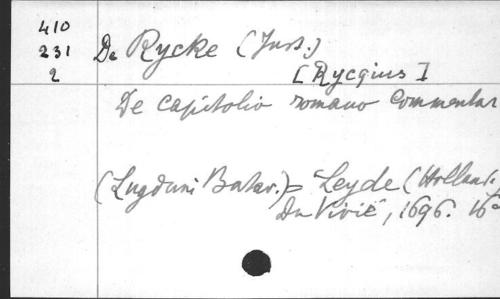 410
231
2
De Rycke (Just.)
[Rycqius]
De Capitolio romano Commentar
(Lugduni Batav.) = Leyde (Holland,
Du Vivié, 1696. 16°